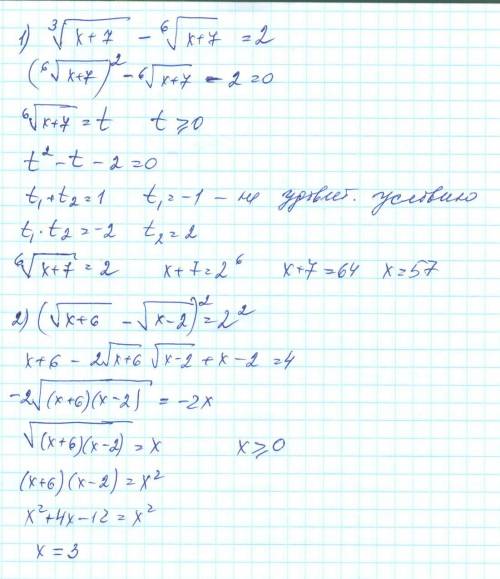 1) ∛(x+7) − ⁶√(x+7) = 2
(⁶√(x+7))² − ⁶√(x+7) − 2 = 0
⁶√(x+7) = t   t ⩾ 0
t² − t − 2 = 0
t₁ + t₂ = 1   t₁ = −1 – не удовлет. условию
t₁ · t₂ = −2   t₂ = 2
⁶√(x+7) = 2   x+7 = 2⁶   x+7 = 64   x = 57
2) (√(x+6) − √(x−2))² = 2²
x+6 − 2√(x+6) √(x−2) + x−2 = 4
−2√((x+6)(x−2)) = −2x
√((x+6)(x−2)) = x   x ⩾ 0
(x+6)(x−2) = x²
x² + 4x − 12 = x²
x = 3